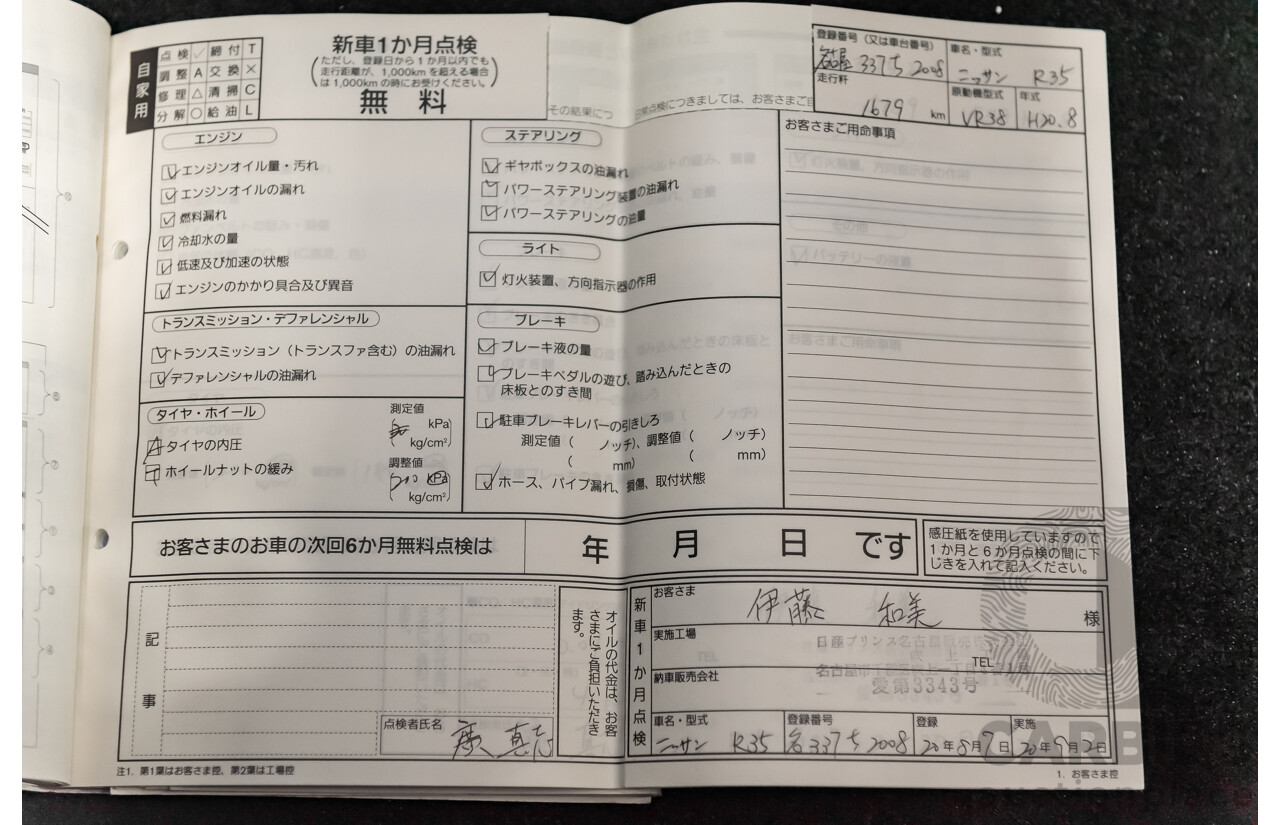 自家用
点検 ✓ 締付 T
調整 A 交換 ×
修理 △ 清掃 C
分解 ○ 給油 L
新車1か月点検
(ただし、登録日から1か月以内でも
走行距離が、1,000kmを超える場合
は1,000kmの時にお受けください。)
無料
登録番号(又は車台番号)
名古屋 337ち2008
車名・型式
ニッサン R35
走行粁
1679 km
原動機型式
VR38
年式
H20.8
エンジン
エンジンオイル量・汚れ
エンジンオイルの漏れ
燃料漏れ
冷却水の量
低速及び加速の状態
エンジンのかかり具合及び異音
トランスミッション・デファレンシャル
トランスミッション(トランスファ含む)の油漏れ
デファレンシャルの油漏れ
タイヤ・ホイール
タイヤの内圧
ホイールナットの緩み
測定値
kPa
kg/cm²
調整値
kPa
kg/cm²
ステアリング
ギヤボックスの油漏れ
パワーステアリング装置の油漏れ
パワーステアリングの油量
ライト
灯火装置、方向指示器の作用
ブレーキ
ブレーキ液の量
ブレーキペダルの遊び、踏み込んだときの
床板とのすき間
駐車ブレーキレバーの引きしろ
測定値( ノッチ)、調整値( ノッチ)
( mm) ( mm)
ホース、パイプ漏れ、損傷、取付状態
お客さまご用命事項
お客さまのお車の次回6か月無料点検は 年 月 日 です
感圧紙を使用していますので
1か月と6か月点検の間に下
じきを入れて記入ください。
記事
点検者氏名
オイルの代金は、お客
さまにご負担いただき
ます。
新車1か月点検
お客さま
伊藤 和美 様
実施工場
日産プリンス名古屋販売
TEL
納車販売会社
愛第3343号
車名・型式
ニッサン R35
登録番号
名337ち2008
登録
20年8月7日
実施
20年9月2日
注1. 第1葉はお客さま控、第2葉は工場控
1. お客さま控